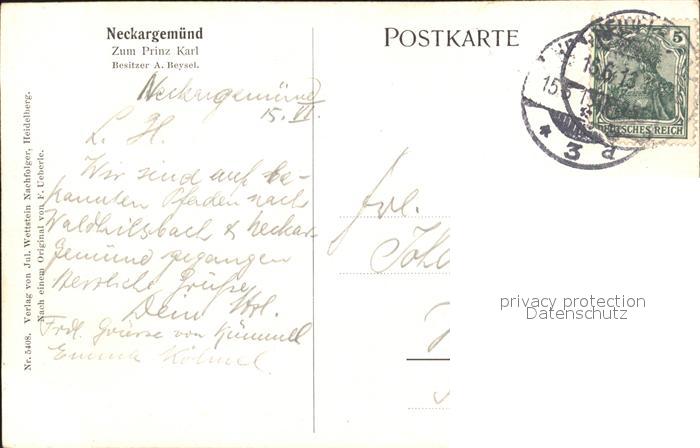 Neckargemünd
Zum Prinz Karl
Besitzer A. Beysel.
POSTKARTE
Neckargemünd
15. VI.
L. H.
Wir sind auf be-
kannten Pfaden nach
Waldhilsbach & Neckar-
gemünd gegangen
Herzliche Grüße
Dein
Frdl. Grüsse von Kümmel
Emma
Nr. 5408. Verlag von Jul. Wettstein Nachfolger, Heidelberg.
Nach einem Original von F. Ueberle.
5
DEUTSCHES REICH
* 3 a
Frl.
privacy protection
Datenschutz